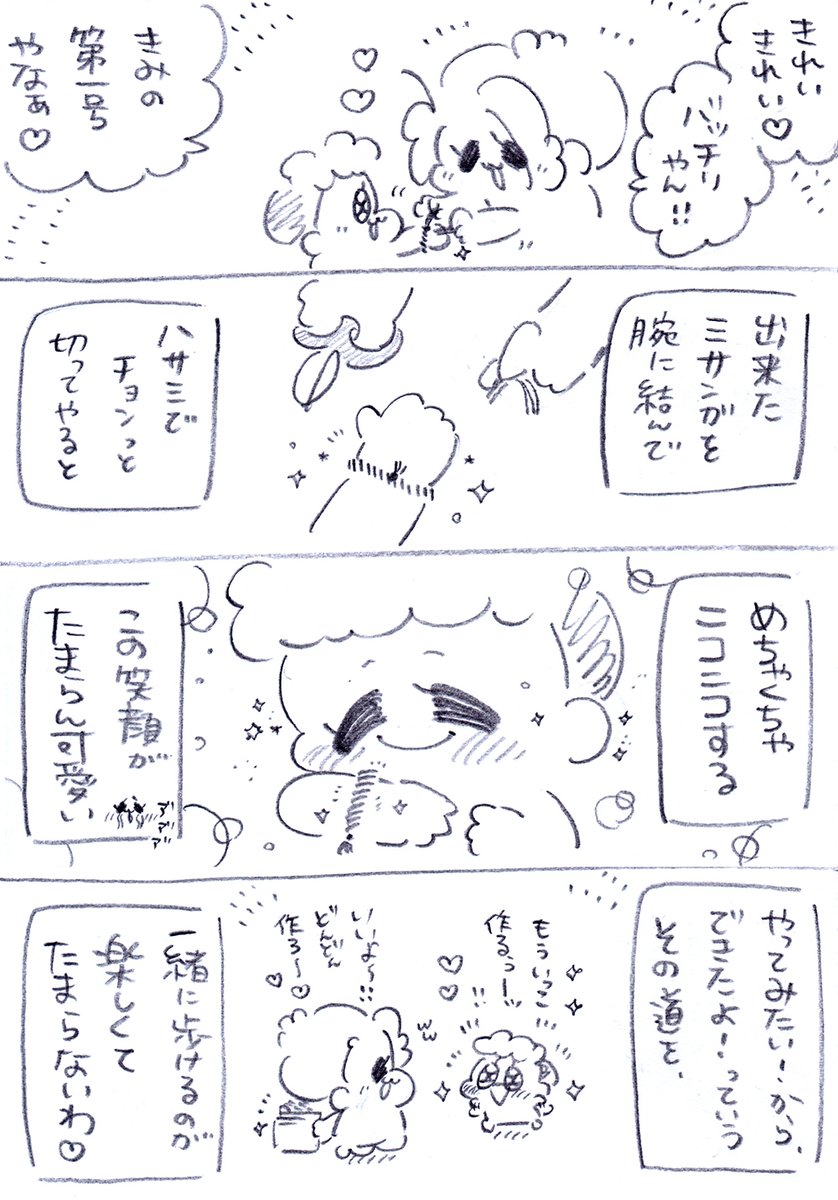 きれい
きれい♡
バッチリ
やん!!
きみの
第一号
やなぁ♡
出来た
ミサンガを
腕に結んで
ハサミで
チョンっと
切ってやると
めちゃくちゃ
ニコニコする
この笑顔が
たまらん可愛い
アアア
やってみたい!から、
できたよ!っていう
その道を、
もういっこ
作るぅーッ
!!
いいよ〜!!
どんどん
作ろ〜
一緒に歩けるのが
楽しくて
たまらないわ♡